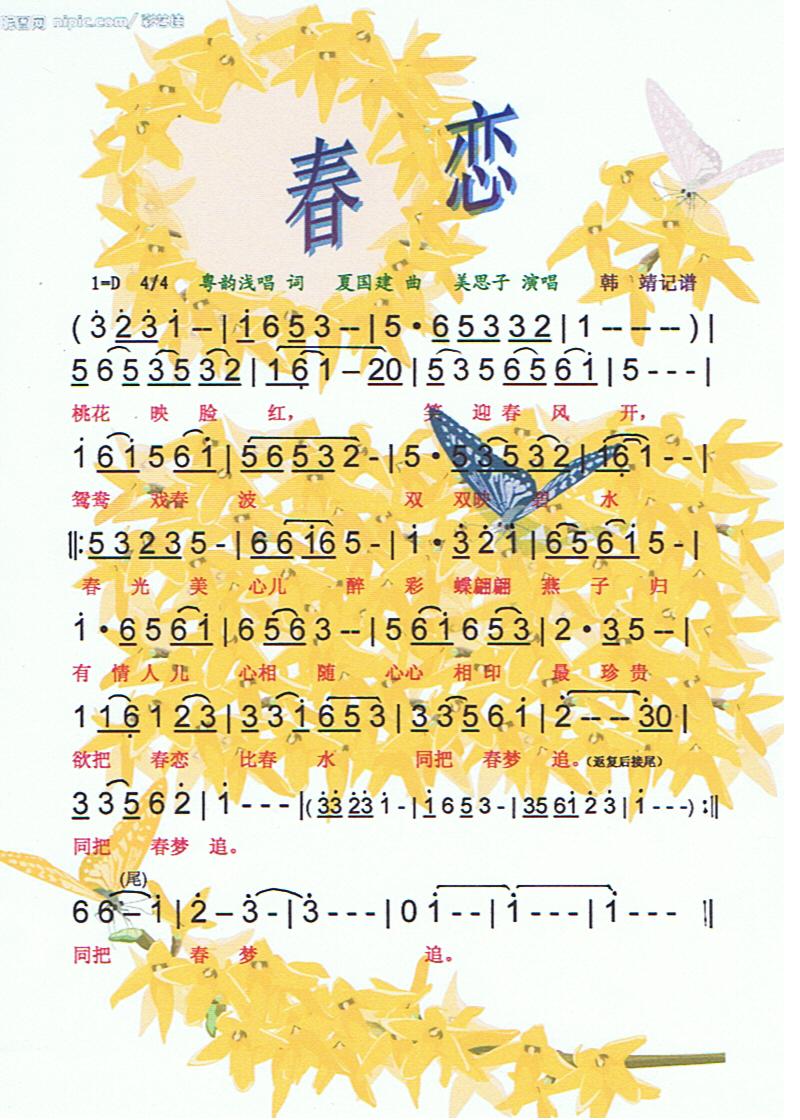 昵图网 nipic.com/ 彩艺佳
春 恋
1=D 4/4 粤韵浅唱 词 夏国建 曲 美思子 演唱 韩 靖记谱
( 3 2 3 1 -- | 1 6 5 3 -- | 5 · 6 5 3 3 2 | 1 -- -- -- ) |
5 6 5 3 5 3 2 | 1 6 1 – 2 0 | 5 3 5 6 5 6 1 | 5 - - - |
桃花 映 脸 红, 笑 迎 春 风 开,
1 6 1 5 6 1 | 5 6 5 3 2 - | 5 · 5 3 5 3 2 | 1 6 1 - - |
鸳鸯 戏春 波 双 双映 碧 水
‖: 5 3 2 3 5 - | 6 6 1 6 5 - | 1 · 3 2 1 | 6 5 6 1 5 - |
春 光 美 心儿 醉 彩 蝶翩翩 燕 子 归
1 · 6 5 6 1 | 6 5 6 3 -- | 5 6 1 6 5 3 | 2 · 3 5 -- |
有 情 人 儿 心相 随 心心 相 印 最 珍 贵
1 1 6 1 2 3 | 3 3 1 6 5 3 | 3 3 5 6 1 | 2 -- -- 3 0 |
欲把 春恋 比春 水 同把 春梦 追。(返复后接尾)
3 3 5 6 2 | 1 - - - | ( 3 3 2 3 1 - | 1 6 5 3 - | 3 5 6 1 2 3 | 1 - - - ) :‖
同把 春梦 追。
(尾)
6 6 – 1 | 2 – 3 - | 3 - - - | 0 1 - - | 1 - - - | 1 - - - ‖
同把 春 梦 追。